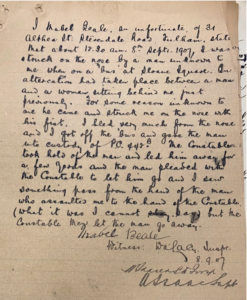 I Mabel Beale, an unfortunate of 31
Road, Fulham, state
that about 12.30 am 8th Sept. 1907, I was
struck on the nose by a man unknown to
me when on a 'bus at Sloane Square. An
altercation had taken place between a man
and a woman sitting behind me just
previously. For some reason unknown to
me he came and struck me on the nose with
his fist. I bled very much from the nose
and I got off the 'bus and gave the man
into custody of P.C. The Constable
took hold of the man and led him away for
a few yards and the man pleaded with
the Constable to let him go and I saw
something pass from the hand of the man
who assaulted me to the hand of the Constable
(What it was I cannot say) but the
Constable then let the man go away.
Mabel Beale
Witness: Inspr.
8.9.07